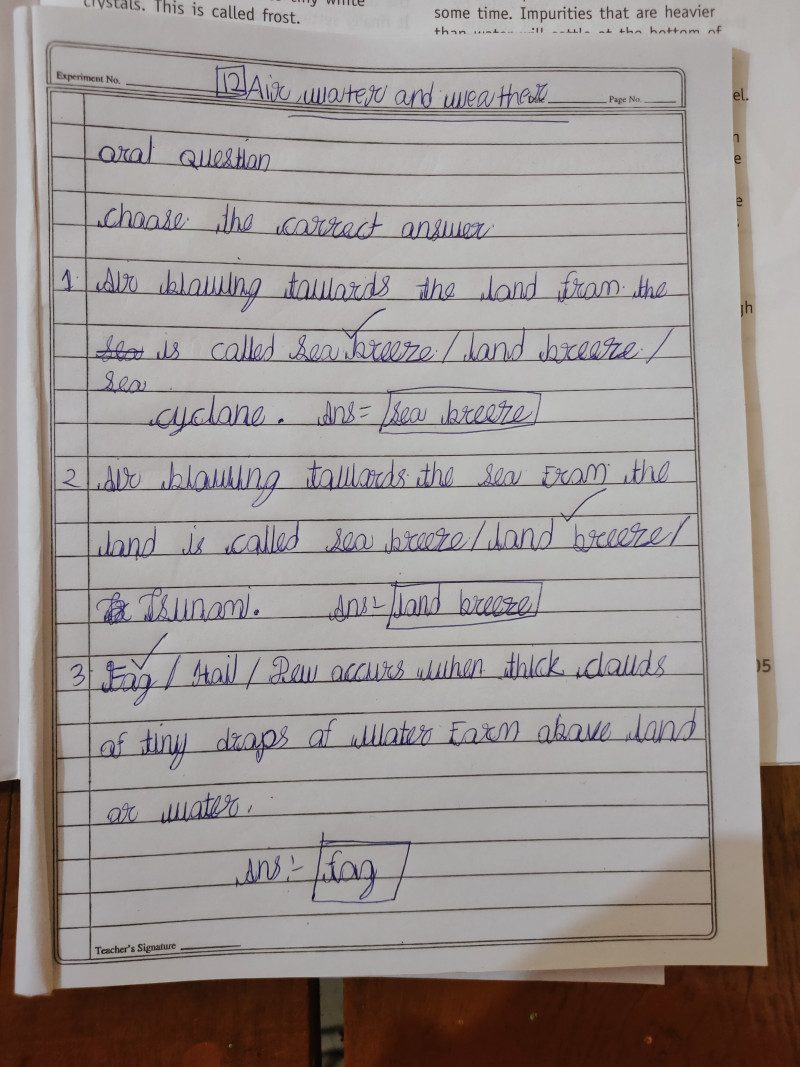 tiny white
crystals. This is called frost.
some time. Impurities that are heavier
than water will settle at the bottom of
Experiment No.
12 Air, water and weather
Date
Page No.
oral question
choose the correct answer
1 Air blowing towards the land from the
sea is called sea breeze / land breeze /
sea
cyclone. Ans = sea breeze
2 Air blowing towards the sea from the
land is called sea breeze / land breeze /
Tsunami. Ans:- land breeze
3 Fog / Hail / Dew occurs when thick clouds
of tiny drops of water form above land
or water.
Ans:- fog
Teacher's Signature